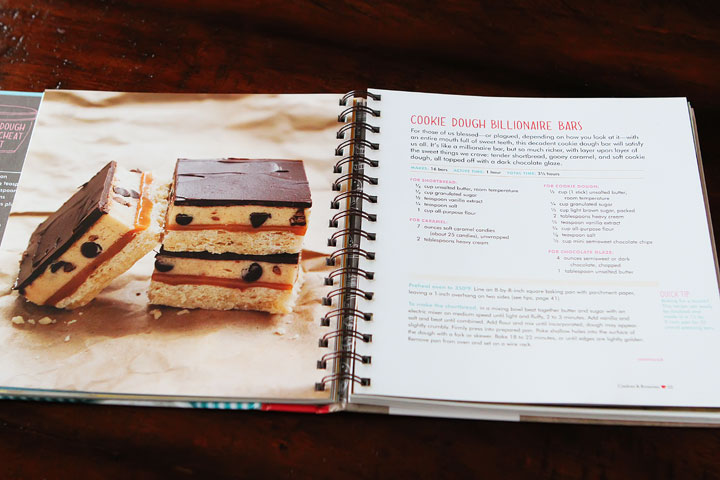 DOUGH
CHEAT
COOKIE DOUGH BILLIONAIRE BARS
For those of us blessed—or plagued, depending on how you look at it—with
an entire mouth full of sweet teeth, this decadent cookie dough bar will satisfy
us all. It's like a millionaire bar, but so much richer, with layer upon layer of
the sweet things we crave: tender shortbread, gooey caramel, and soft cookie
dough, all topped off with a dark chocolate glaze.
MAKES: 16 bars ACTIVE TIME: 1 hour TOTAL TIME: 3½ hours
FOR SHORTBREAD:
cup unsalted butter, room temperature
cup granulated sugar
teaspoon vanilla extract
teaspoon salt
cup all-purpose flour
FOR CARAMEL:
7 ounces soft caramel candies
(about 25 candies), unwrapped
2 tablespoons heavy cream
FOR COOKIE DOUGH:
½ cup (1 stick) unsalted butter,
room temperature
cup granulated sugar
cup light brown sugar, packed
2 tablespoons heavy cream
teaspoon vanilla extract
cup all-purpose flour
teaspoon salt
cup mini semisweet chocolate chips
FOR CHOCOLATE GLAZE:
4 ounces semisweet or dark
chocolate, chopped
1 tablespoon unsalted butter
Preheat oven to 350°F. Line an 8-by-8-inch square baking pan with parchment paper,
leaving a 1-inch overhang on two sides (see tips, page 41).
To make the shortbread, in a mixing bowl beat together butter and sugar with an
electric mixer on medium speed until light and fluffy, 2 to 3 minutes. Add vanilla and
salt and beat until combined. Add flour and mix until incorporated; dough may appear
slightly crumbly. Firmly press into prepared pan. Poke shallow holes into the surface of
the dough with a fork or skewer. Bake 18 to 22 minutes, or until edges are lightly golden.
Remove pan from oven and set on a wire rack.
QUICK TIP
Cookies & Brownies